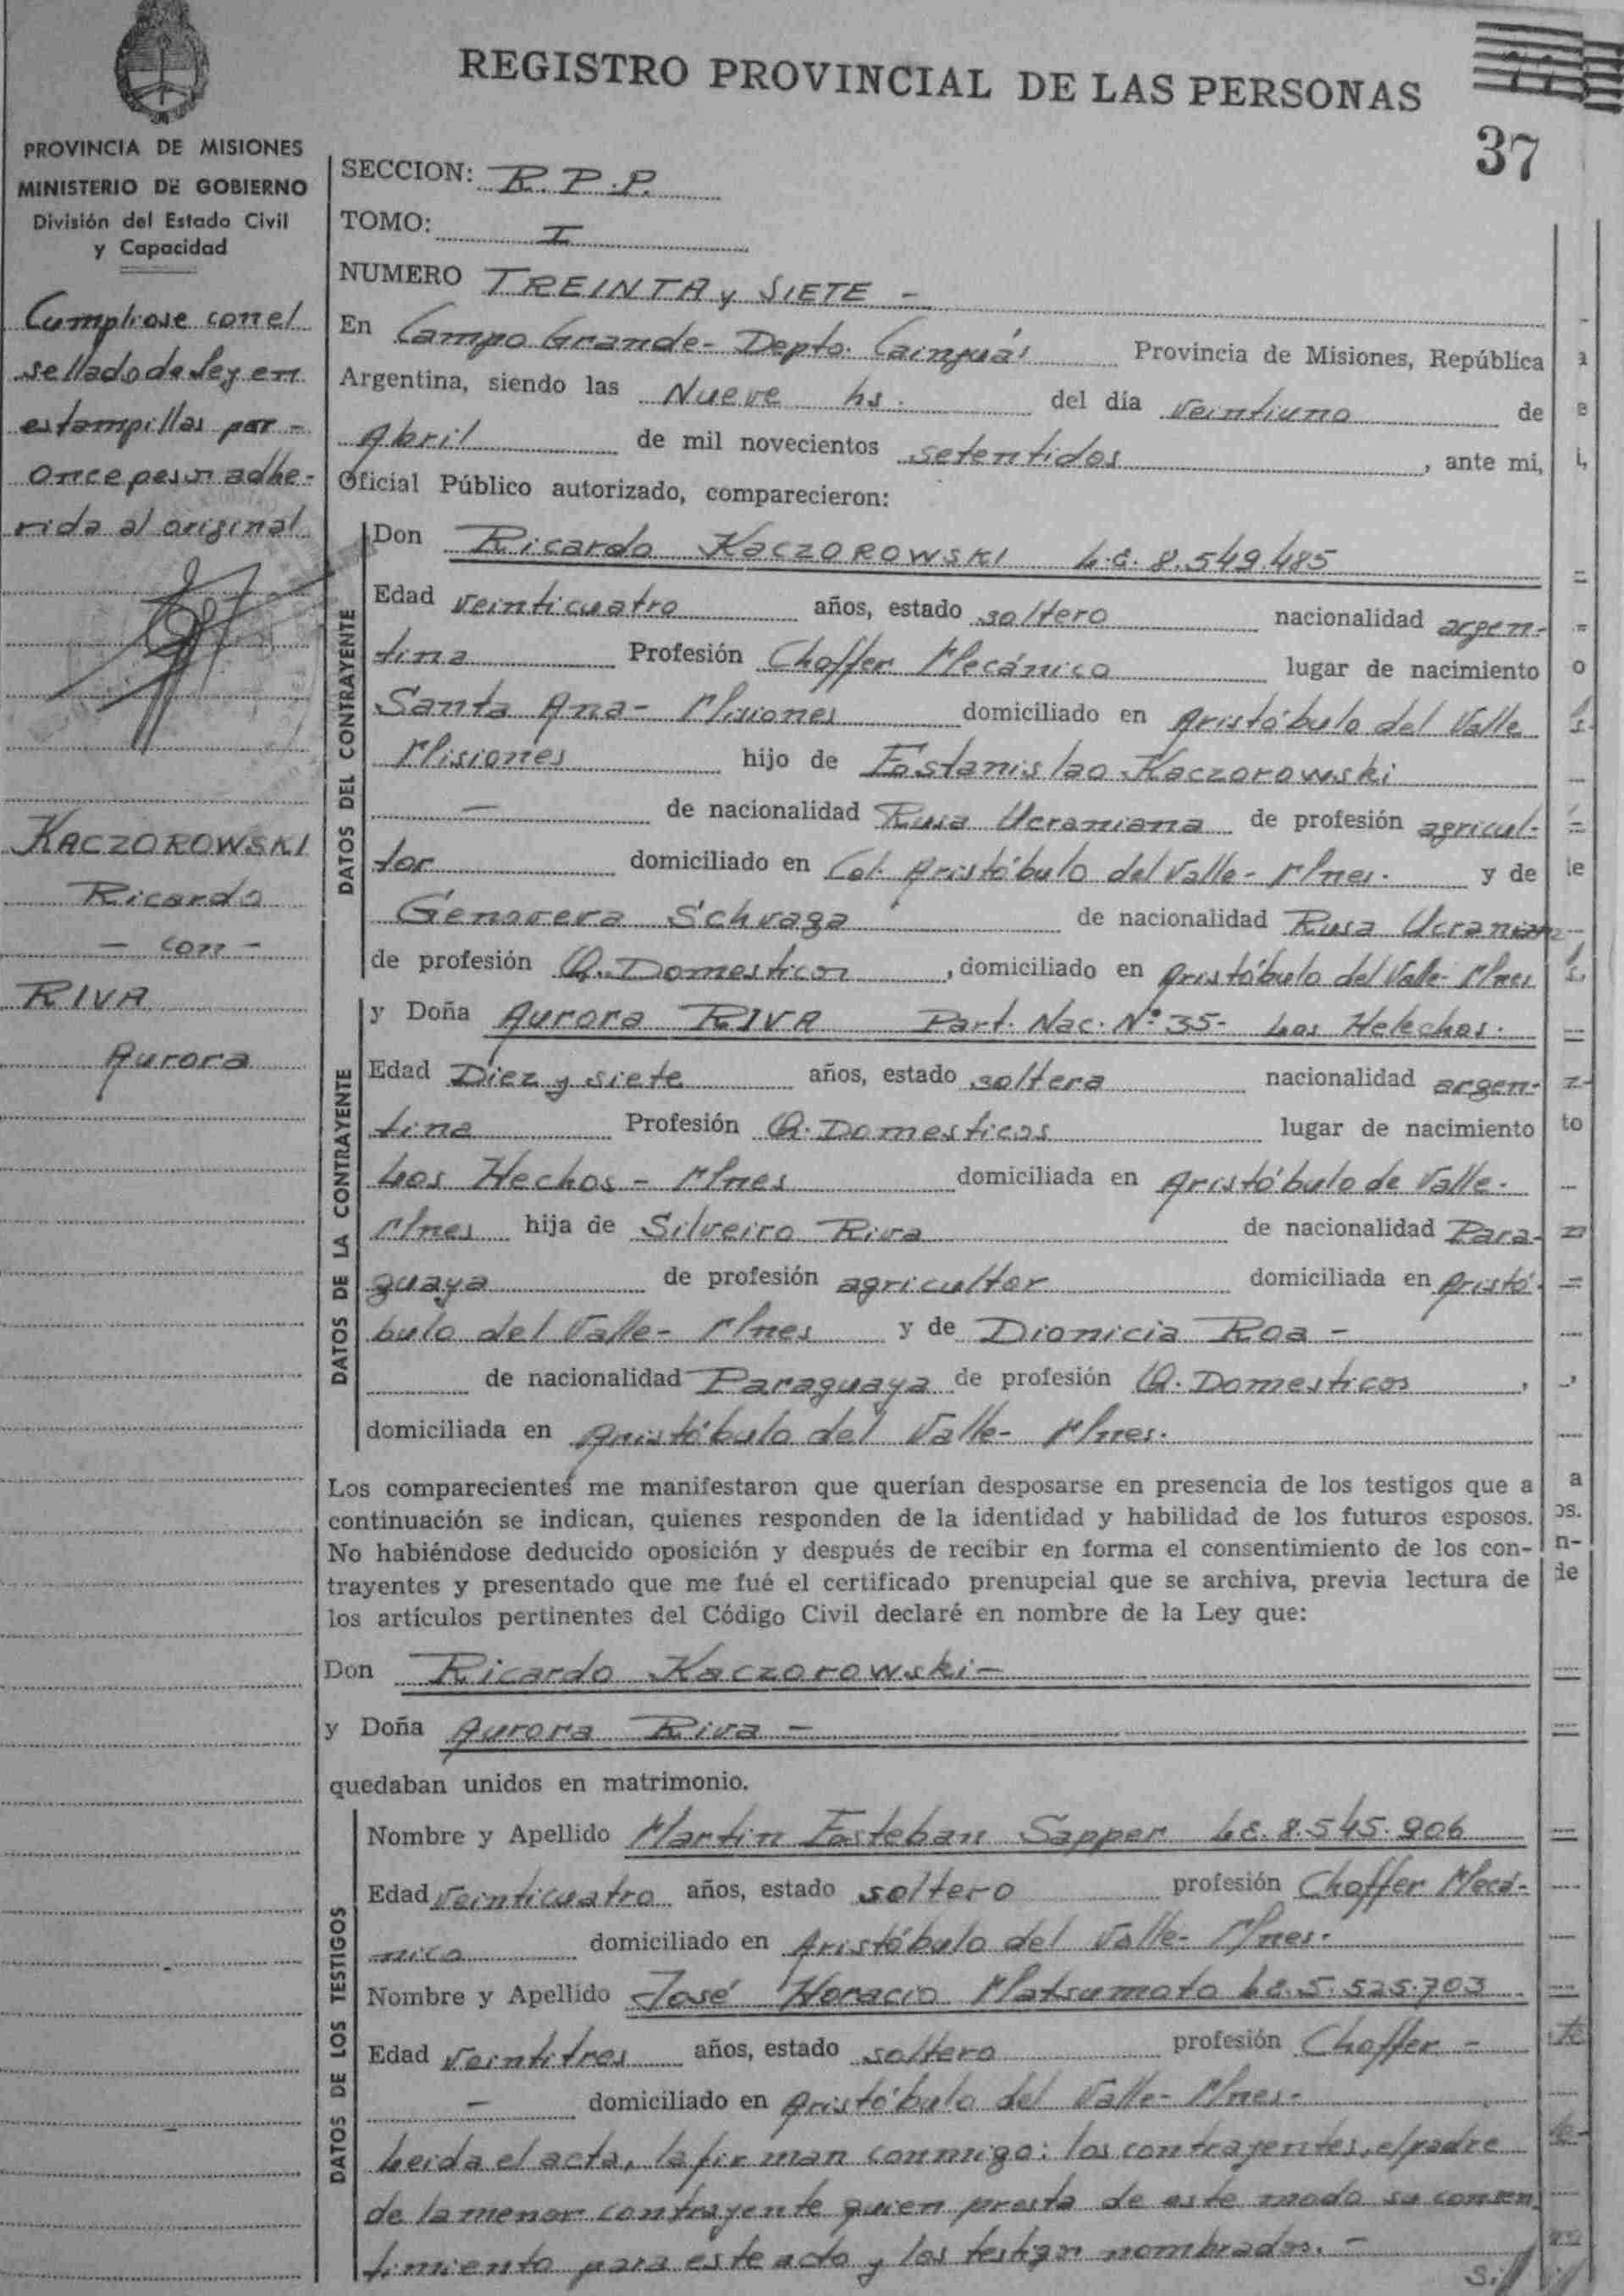 REGISTRO PROVINCIAL DE LAS PERSONAS
37
PROVINCIA DE MISIONES
MINISTERIO DE GOBIERNO
División del Estado Civil
y Capacidad
Cumpliose con el
sellado de ley en
estampillas por -
once pesos adhe-
rida al original
KACZOROWSKI
Ricardo
- con -
RIVA
Aurora
SECCION: R. P. P.
TOMO: I
NUMERO TREINTA y SIETE -
En Campo Grande - Depto. Cainguás Provincia de Misiones, República
Argentina, siendo las Nueve hs. del día veintiuno de
Abril de mil novecientos setentidos, ante mi,
Oficial Público autorizado, comparecieron:
DATOS DEL CONTRAYENTE
Don Ricardo KACZOROWSKI L.E. 8.549.485
Edad veinticuatro años, estado soltero nacionalidad argen-
tina Profesión Choffer Mecánico lugar de nacimiento
Santa Ana - Misiones domiciliado en Aristóbulo del Valle
Misiones hijo de Estanislao Kaczorowski
- de nacionalidad Rusa Ucraniana de profesión agricul-
tor domiciliado en Col. Aristóbulo del Valle - Mnes. y de
Genoveva Schvaga de nacionalidad Rusa Ucraniana
de profesión Q. Domesticos, domiciliado en Aristóbulo del Valle - Mnes
DATOS DE LA CONTRAYENTE
y Doña Aurora RIVA Part. Nac. Nº 35 - Los Helechos.
Edad Diez y siete años, estado soltera nacionalidad argen-
tina Profesión Q. Domesticos lugar de nacimiento
Los Hechos - Mnes domiciliada en Aristóbulo de Valle -
Mnes hija de Silveiro Riva de nacionalidad Para-
guaya de profesión agricultor domiciliada en Aristó-
bulo del Valle - Mnes y de Dionicia Roa -
de nacionalidad Paraguaya de profesión Q. Domesticos,
domiciliada en Aristóbulo del Valle - Mnes.
Los comparecientes me manifestaron que querían desposarse en presencia de los testigos que a
continuación se indican, quienes responden de la identidad y habilidad de los futuros esposos.
No habiéndose deducido oposición y después de recibir en forma el consentimiento de los con-
trayentes y presentado que me fué el certificado prenupcial que se archiva, previa lectura de
los artículos pertinentes del Código Civil declaré en nombre de la Ley que:
Don Ricardo Kaczorowski -
y Doña Aurora Riva -
quedaban unidos en matrimonio.
DATOS DE LOS TESTIGOS
Nombre y Apellido Martin Esteban Sapper L.E. 8.545.906
Edad veinticuatro años, estado soltero profesión Choffer Mecá-
nico domiciliado en Aristóbulo del Valle - Mnes.
Nombre y Apellido José Horacio Matsumoto L.E. 5.525.703
Edad veintitres años, estado soltero profesión Choffer -
- domiciliado en Aristóbulo del Valle - Mnes -
Leida el acta, la firman conmigo: los contrayentes, el padre
de la menor contrayente quien presta de este modo su consen
timiento para este acto y los testigos nombrados. -